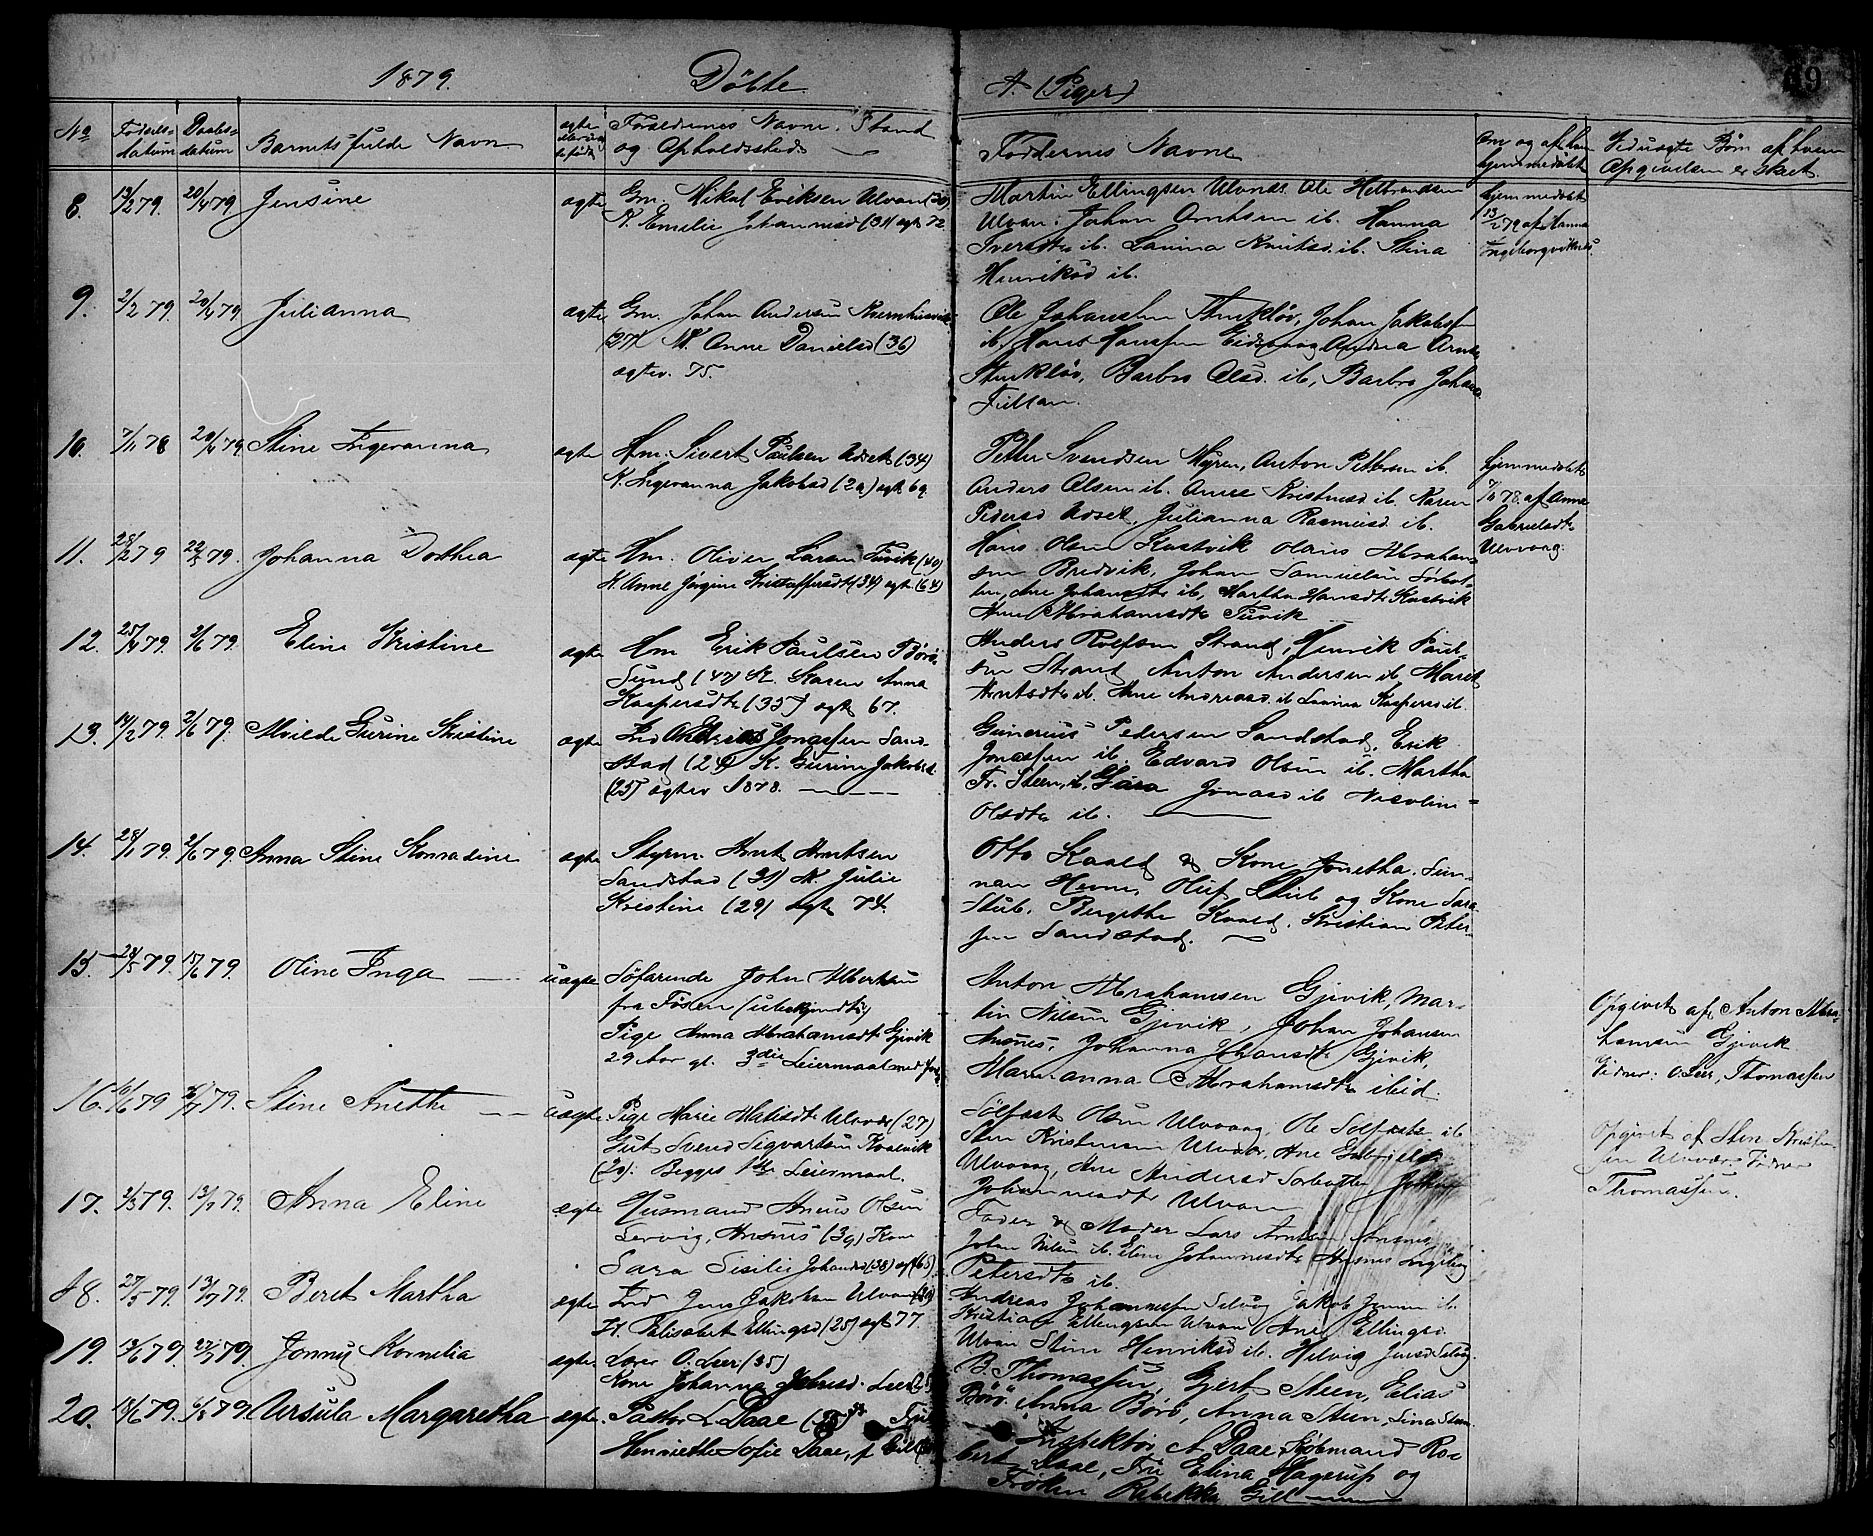 1879. Döbte A. (Piger) 69
No Fødsels-datum Daabs-datum Barnets fulde Navn ægte eller uægte født Forældrenes Navne, Stand og Opholdssted
Faddernes Navne Om og af hvem hjemmedøbt Ved uægte Børn af hvem Opgivelsen er skeet.
8. 13/2 79. 20/4 79 Jensine ægte Gm. Mikal Eriksen Ulvan
K. Emelie Johannesd (31) egt 72
Martin Ellingsen Ulvnes. Ole Helbrandsen
Ulvan. Johan Arntsen ib. Hanna
Iversdtr ib. Lavina Knutsd. ib. Stina
Henriksd ib.
hjemmedøbt
13/2 79 af Hanna
Ingeborgviknes.
9. 2/2 79. 20/4 79. Julianna ægte Gm. Johan Andersen
(37) K. Anne Danielsd (36)
egtev. 75.
Ole Johansen Stenkløv, Johan Jakobsen
ib. Hans Hansen Eidsvaag Andrea Arnts
Stenkløv, Barbro Olsd. ib, Barbro Johans
Fillan.
10. 7/11 78 20/4 79. Stine Ingevanna ægte Hm. Sivert Paulsen Udset (34)
K. Ingevanna Jakobsd (29) egt 69.
Petter Svendsen Myren, Anton Pettersen ib.
Anders Olsen ib. Anne Kristensd. ib. Karen
Pedersd Udset, Julianna Rasmusd. ib.
hjemmedøbt
7/11 78. af Anna
Gabrielsdtr
Ulvaag.
11. 28/2 79 22/5 79. Johanna Dorthea ægte Hm. Oliver Larsen Tuvik (40)
K. Anne Jørgine Kristoffersdtr (34) egt (64)
Hans Olsen Kastvik Olaus Abraham-
sen Bredvik, Johan Samuelsen Sørbot-
ten, Ane Johansdtr ib, Martha Hansdtr Kastvik
Ane Abrahamsdtr Tuvik
12. 25/4 79. 2/6 79. Eline Kristine ægte Hm Erik Paulsen Börö-
Sund (47) K. Karen Anna
Kaspersdtr (35) egt 67.
Anders Rolfsen Strand, Henrik Paul-
sen Strand Anton Andersen ib. Marit
Arntsdtr ib. Ane Andreasd ib Lavina Kaspersd ib.
13. 14/2 79. 2/6 79. Alvilde Gurine Kristine ægte Ind Andreas Jonassen Sand-
stad (24) K. Gurine Jakobsd
(25) egtev 1878.
Gunerius Pedersen Sandstad, Erik
Jonassen ib. Edvard Olsen ib. Martha
Fr. Steen, ib. Gura Jonasd ib Nicoline
Olsdtr ib.
14. 28/1 79. 2/6 79. Anna Stine Konradine ægte Styrm. Arnt Arntsen
Sandstad (31) K. Julie
Kristine (29) egt 74.
Otto Kaald & Kone Jonetha. Sun-
nan Hevne, Oluf Stub og Kone Sara
Stub. Bergithe Kaald, Kristian Peter-
sen Sandstad.
15. 24/5 79. 15/6 79. Oline Inga uægte Söfarende John Albertsen
fra Fosen (ubekjendt)
Pige Anna Abrahamsdtr Gjevik
29 Aar gl. 3die Leiermaal med
Anton Abrahamsen Gjevik, Mar-
tin Nilsen Gjevik, Johan Johansen
Ansnes, Johanna Johansdtr Gjevik,
Marianna Abrahamsdtr ibid.
Opgivet af Anton Abra-
hamsen Gjevik
Vidner: O. Leer, Thomassen
16. 79 79. Stine Anethe uægte Pige Marie Matisdtr Ulvnes (27)
Gut Svend Sigvartsen Kvalvik
(20). Begges 1ste Leiermaal.
Solfast Olsen Ulvaag, Ole Solfastsen ib
Sten Kristensen Ulvær, Ane Gabrielsd
Ulvaag, Ane Andersd Sørbotten
Johannesdtr Ulvan
Opgivet af Sten Kristen-
sen Ulvær. Vidner
Thomassen.
17. 3/5 79. 13/7 79. Anna Eline ægte Husmand Anders Olsen
Lervig, Ansnes (39) Kone
Sara Sisilie Johansd (38) egt (65)
Fader & Moder Lars Arntsen Ansnes
Johan Nilsen ib. Eline Johannesdtr Ansnes Ingeborg
Petersdtr ib.
18. 27/5 79. 13/7 79. Beret Martha ægte Ind Jens Jakobsen Ulvan
K. Elisabet Ellingsd (25) egt 77.
Andreas Johannessen Selvåg Jakob Jensen ib.
Kristian Ellingsen Ulvan Ane Ellingsd.
Ulvan Stine Henriksd ib. Helvig Jensd Selvåg
19. 13/6 79. 27/7 79. Jonny Kornelia ægte. Lærer O. Leer (35)
Kone Johanna Leer
B. Thomassen, Gjert Steen, Elias
Börö. Anna Börö, Anna Steen, Lina Steen
20. 14/6 79. 6/8 79 Ursula Margaretha ægte. Pastor L Daae Fru
Henriette Sofie Daae, f. Gill
Inspektör A Daae, Kjöbmand Ro-
bert Daae, Fru Elina Hagerup og
Fröken Rebekka Gill